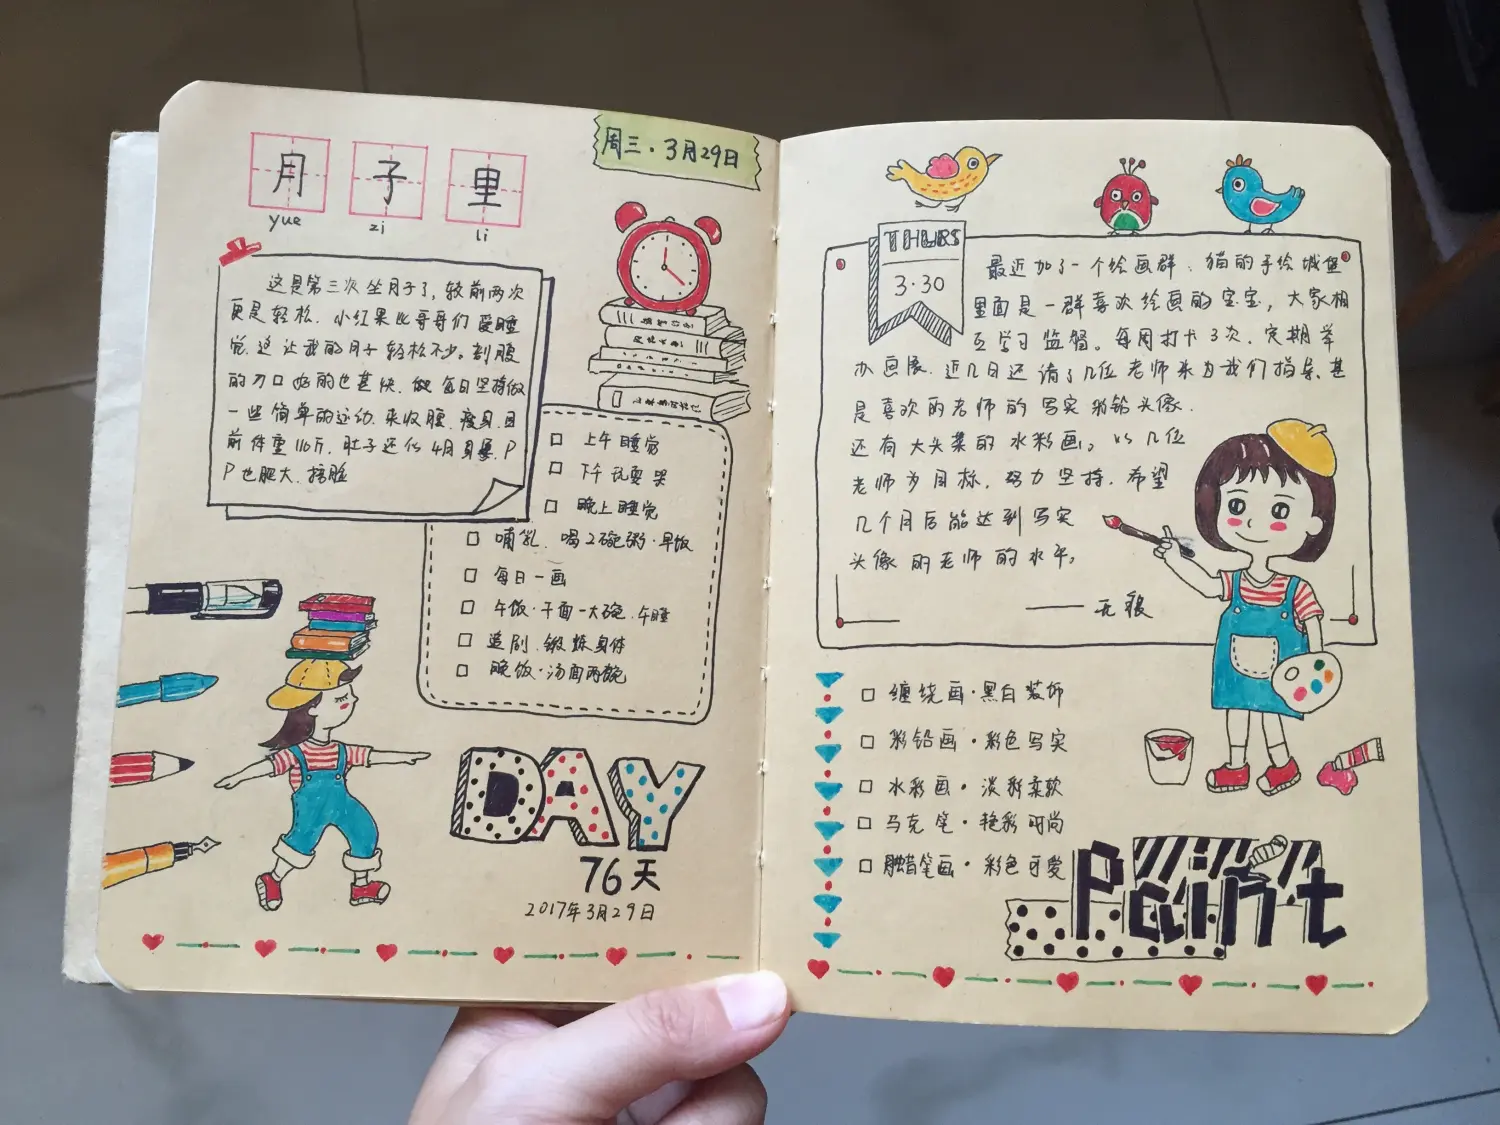 月子里
yue zi li
周三·3月29日
这是第三次坐月子了,较前两次
更是轻松.小红果比哥哥们爱睡
觉.这让我的月子轻松不少。剖腹
的刀口好的也甚快.每日坚持做
一些简单的运动.来收腹.瘦身.目
前体重116斤.肚子还似4月身孕.P
P也肥大.捂脸
上午睡觉
下午玩耍 哭
晚上睡觉
哺乳.喝2碗粥·早饭
每日一画
午饭·干面一大碗.午睡
追剧.锻炼身体
晚饭·汤面两碗
DAY
76天
2017年3月29日
THURS
3.30
最近加了一个绘画群.猫的手绘城堡
里面是一群喜欢绘画的宝宝,大家相
互学习监督。每周打卡3次.定期举
办画展.近几日还请了几位老师来为我们指导.甚
是喜欢的老师的写实彩铅头像.
还有大头菜的水彩画。以几位
老师为目标.努力坚持.希望
几个月后能达到写实
头像的老师的水平。
缠绕画·黑白装饰
彩铅画·彩色写实
水彩画·淡彩柔软
马克笔·艳彩时尚
蜡笔画·彩色可爱
Paint